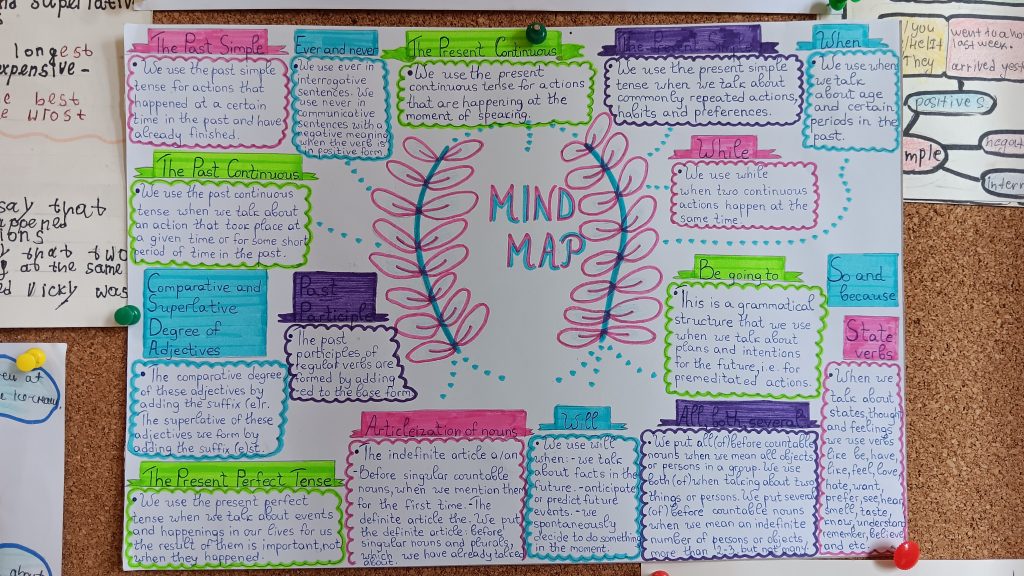 longest
expensive -
best
wrost
say that
happened
that two
at the same
Vicky was
The Past Simple
• We use the past simple
tense for actions that
happened at a certain
time in the past and have
already finished.
Ever and never
• We use ever in
interrogative
sentences. We
use never in
communicative
sentences with a
negative meaning
when the verb is
in positive form
The Present Continuous
• We use the present
continuous tense for actions
that are happening at the
moment of speaking.
The Present Simple
• We use the present simple
tense when we talk about
commonly repeated actions,
habits and preferences.
When
• We use when
we talk
about age
and certain
periods in the
past.
The Past Continuous
• We use the past continuous
tense when we talk about
an action that took place at
a given time or for some short
period of time in the past.
MIND
MAP
While
• We use while
when two continuous
actions happen at the
same time
Comparative and
Superlative
Degree of
Adjectives
• The comparative degree
of these adjectives by
adding the suffix (e)r.
The superlative of these
adjectives we form by
adding the suffix (e)st.
Past
Participle
• The past
participles of
regular verbs are
formed by adding
-ed to the base form
Be going to
• This is a grammatical
structure that we use
when we talk about
plans and intentions
for the future, i.e. for
premeditated actions.
So and
because
State
verbs
• When we
talk about
states, though
and feelings
we use verbs
like be, have,
like, feel, love,
hate, want,
prefer, see, hear
smell, taste,
know, understand
remember, believe
and etc.
The Present Perfect Tense
• We use the present perfect
tense when we talk about events
and happenings in our lives for us
the result of them is important, not
when they happened.
Articleization of nouns
• The indefinite article a/an -
- Before singular countable
nouns, when we mention them
for the first time. - The
definite article the. We put
the definite article before
singular nouns and plurals,
which we have already talked
about.
Will
• We use will
when: - we talk
about facts in the
future - anticipate
or predict future
events. - we
spontaneously
decide to do something
in the moment.
All, both, several
• We put all (of) before countable
nouns when we mean all objects
or persons in a group. We use
both (of) when talking about two
things or persons. We put several
(of) before countable nouns
when we mean an indefinite
number of persons or objects
more than 1-2-3, but not many
/you
They
went to a
last week.
arrived
positives
at
about